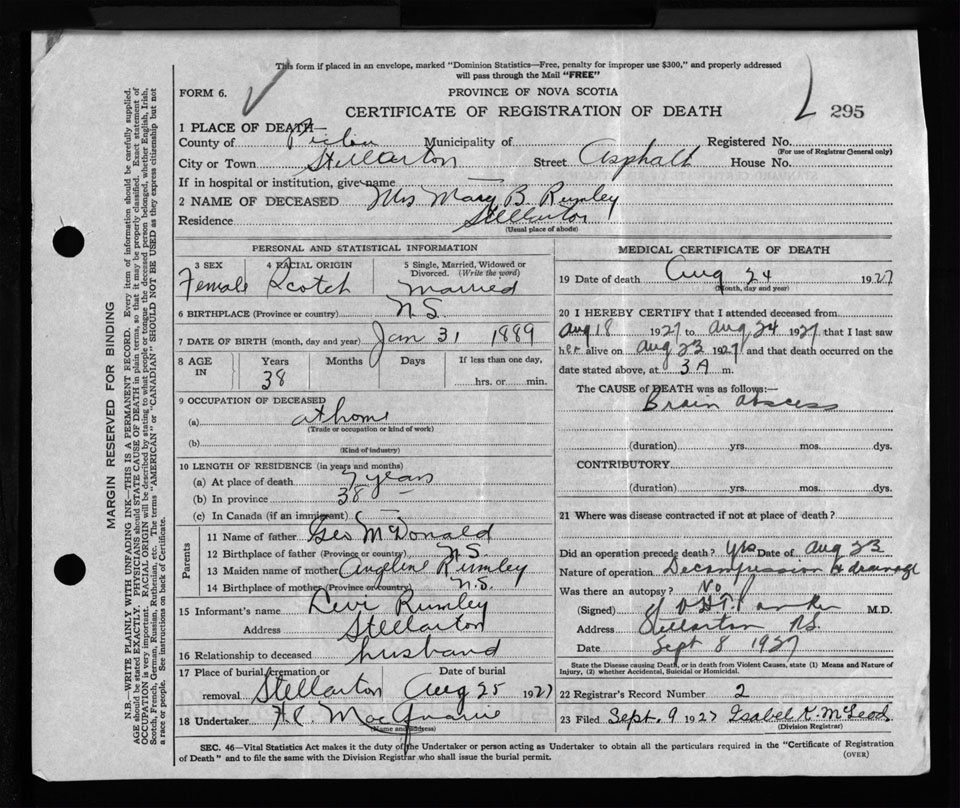 This form if placed in an envelope, marked "Dominion Statistics—Free, penalty for improper use $300," and properly addressed
will pass through the Mail "FREE"
FORM 6.
PROVINCE OF NOVA SCOTIA
CERTIFICATE OF REGISTRATION OF DEATH
295
1 PLACE OF DEATH—
County of Pictou Municipality of Registered No.
(For use of Registrar General only)
City or Town Stellarton Street Asphalt House No.
If in hospital or institution, give name —
2 NAME OF DECEASED Mrs Mary B. Rumley
Residence Stellarton
(Usual place of abode)
PERSONAL AND STATISTICAL INFORMATION
3 SEX 4 RACIAL ORIGIN 5 Single, Married, Widowed or Divorced. (Write the word)
Female Scotch Married
6 BIRTHPLACE (Province or country) N.S.
7 DATE OF BIRTH (month, day and year) Jan 31 1889
8 AGE IN Years Months Days If less than one day,
38 hrs. or min.
9 OCCUPATION OF DECEASED
(a) at home
(Trade or occupation or kind of work)
(b)
(Kind of industry)
10 LENGTH OF RESIDENCE (in years and months)
(a) At place of death 7 years
(b) In province 38 —
(c) In Canada (if an immigrant)
Parents
11 Name of father Geo McDonald
12 Birthplace of father (Province or country) N S
13 Maiden name of mother Angeline Rumley
14 Birthplace of mother (Province or country) N.S.
15 Informant's name Levi Rumley
Address Stellarton
16 Relationship to deceased husband
17 Place of burial, cremation or removal Date of burial
Stellarton Aug 25 1927
18 Undertaker
(Name and address)
MEDICAL CERTIFICATE OF DEATH
19 Date of death Aug 24 1927
(Month, day and year)
20 I HEREBY CERTIFY that I attended deceased from
Aug 18 1927 to Aug 24 1927 that I last saw
her alive on Aug 23 1927 and that death occurred on the
date stated above, at 3 A m.
The CAUSE of DEATH was as follows:—
Brain abscess
(duration) yrs. mos. dys.
CONTRIBUTORY
(duration) yrs. mos. dys.
21 Where was disease contracted if not at place of death?
Did an operation precede death? yes Date of Aug 23
Nature of operation Decompression & drainage
Was there an autopsy? No
(Signed) M.D.
Address Stellarton N.S.
Date Sept 8 1927
State the Disease causing Death, or in death from Violent Causes, state (1) Means and Nature of
Injury, (2) whether Accidental, Suicidal or Homicidal.
22 Registrar's Record Number 2
23 Filed Sept. 9 1927 Isabel K. McLeod
(Division Registrar)
SEC. 46—Vital Statistics Act makes it the duty of the Undertaker or person acting as Undertaker to obtain all the particulars required in the "Certificate of Registration
of Death" and to file the same with the Division Registrar who shall issue the burial permit.
(OVER)
MARGIN RESERVED FOR BINDING
N.B.—WRITE PLAINLY WITH UNFADING INK—THIS IS A PERMANENT RECORD. Every item of information should be carefully supplied.
AGE should be stated EXACTLY. PHYSICIANS should STATE CAUSE OF DEATH in plain terms, so that it may be properly classified. Exact statement of
OCCUPATION is very important. RACIAL ORIGIN will be described by stating to what people or tongue the deceased person belonged, whether English, Irish,
Scotch, French, German, Russian, Ruthenian, etc. The terms "AMERICAN" or "CANADIAN" SHOULD NOT BE USED as they express citizenship but not
a race or people. See instructions on back of Certificate.